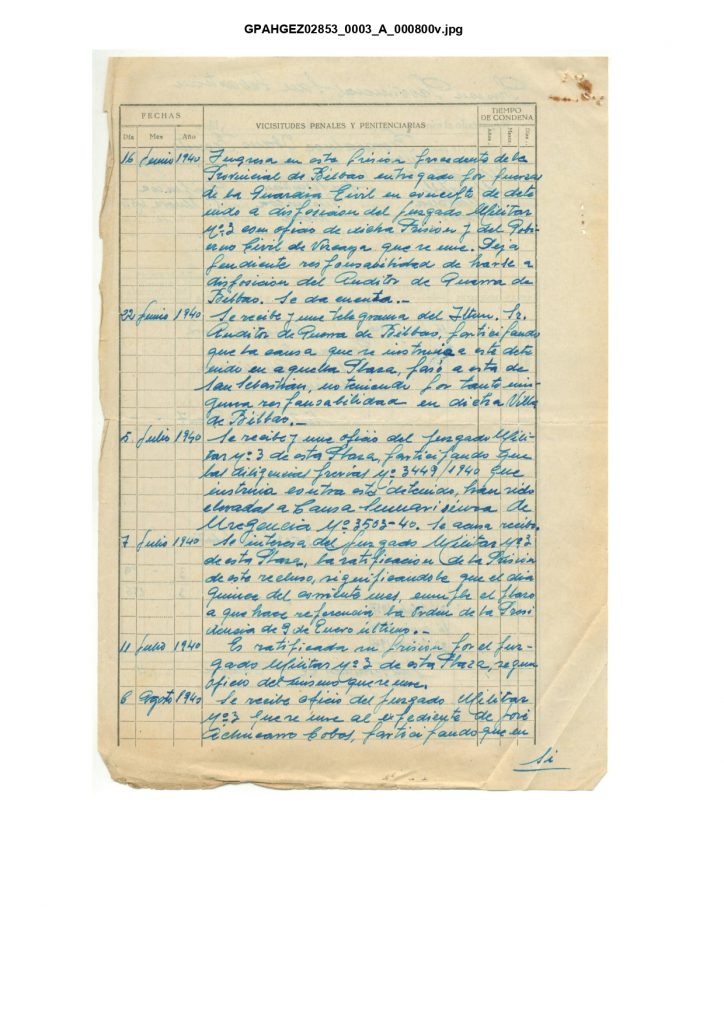 GPAHGEZ02853_0003_A_000800v.jpg
FECHAS
VICISITUDES PENALES Y PENITENCIARIAS
TIEMPO DE CONDENA
Día Mes Año
Años Meses Días
16 Junio 1940 Ingresa en esta Prisión procedente de la
Provincial de Bilbao entregado por fuerzas
de la Guardia Civil en concepto de dete
nido a disposicion del Juzgado Militar
nº 3 con oficio de dicha Prision y del Gobi-
erno Civil de Vizcaya que se une. Deja
pendiente responsabilidad de
disposicion del Auditor de Guerra de
Bilbao. Se da cuenta.-
22 Junio 1940 Se recibe y une telegrama del Iltmo. Sr.
Auditor de Guerra de Bilbao, participando
que la causa que se instruia a este dete
nido en aquella Plaza, pasó a esta de
San Sebastián, no teniendo por tanto nin-
guna responsabilidad en dicha Villa
de Bilbao.-
5 Julio 1940 Se recibe y une oficio del Juzgado Mili-
tar nº 3 de esta Plaza, participando que
las diligencias previas nº 3449/1940 que
instruia contra este detenido, han sido
elevadas a Causa Sumarisima de
Uregencia Nº 3503-40. Se acusa recibo.
7 Julio 1940 Se interesa del Juzgado Militar nº 3
de esta Plaza, la ratificacion de la Prisión
de este recluso, significandole que el dia
quince del corriente mes, cumple el plazo
a que hace referencia la Orden de la Presi
dencia de 9 de Enero último.-
11 Julio 1940 Es ratificada su prisión por el Juz-
gado Militar nº 3 de esta Plaza, segun
oficio del mismo que se une.
6 Agosto 1940 Se recibe oficio del Juzgado Militar
nº 3 que se une al expediente de José
Achucarro Cobos, participando que en
si